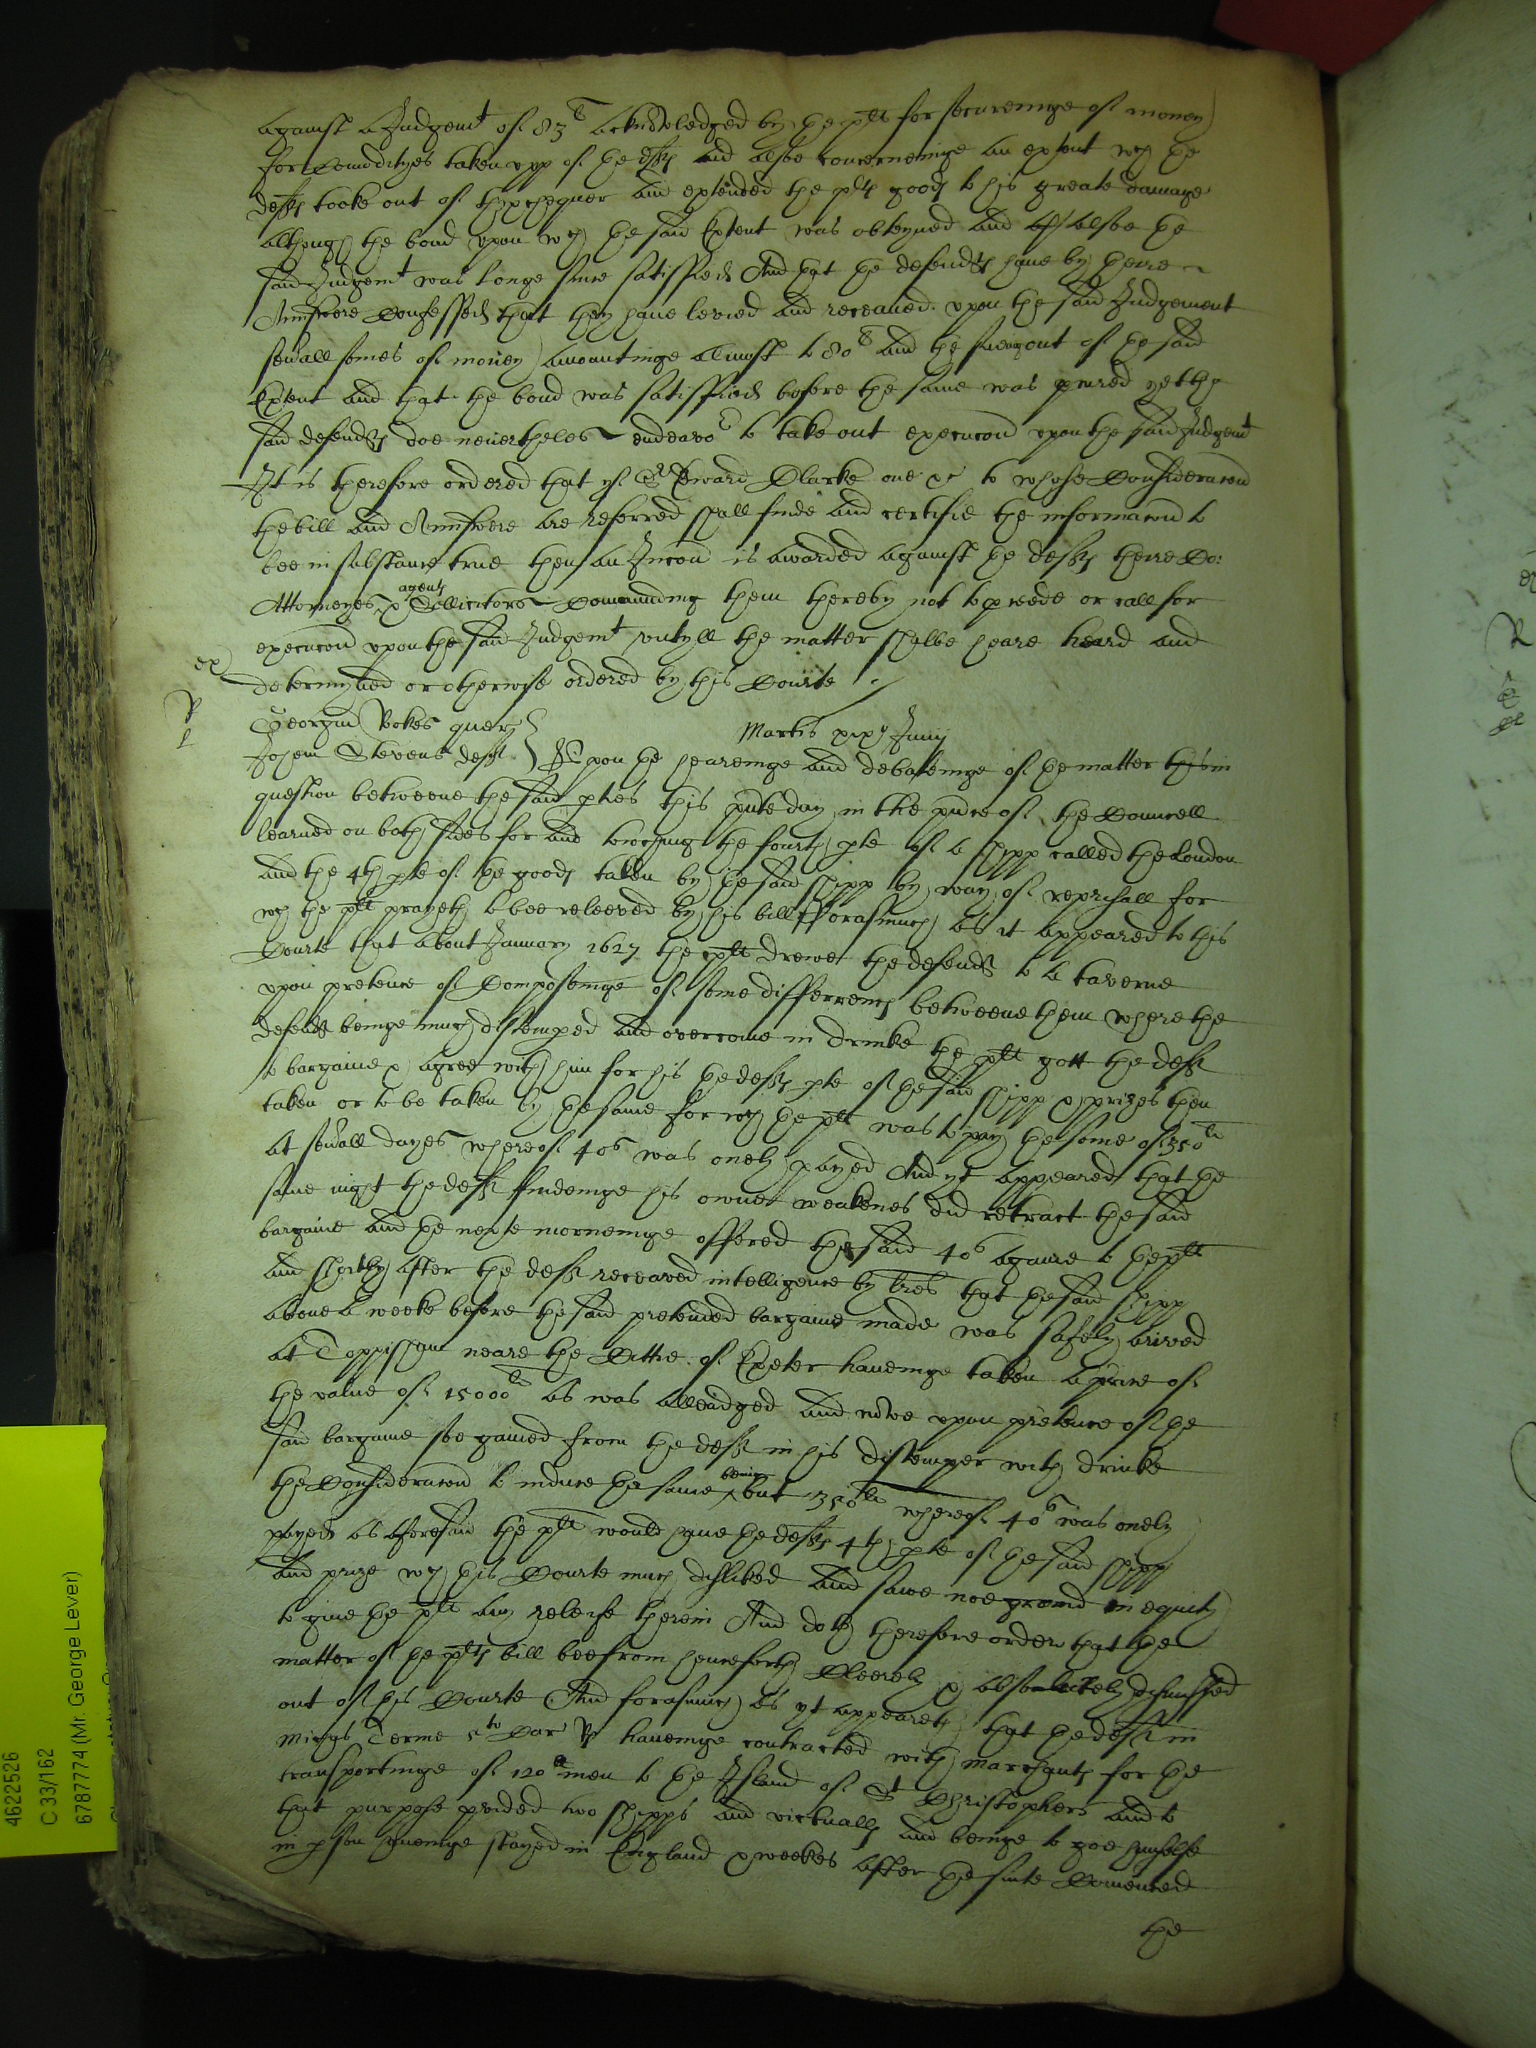 against a Judgemt of 83li acknowledged by the plt for secureinge of money
for Comodityes taken upp of the defts and alsoe concerneinge an extent wch the
defts tooke out of thexchequer and extended the plts goods to his greate damage
although the bond upon wch the said Extent was obteyned and alsoe the
said Judgemt was longe since satisfied And that the defendts have by theire
Aunswere Confessed that they have levied and receaved upon the said Judgement
sevrall somes of money amountinge almost to 80li and the sueing out of the said
Extent and that the bond was satisfied before the same was p'cured yet the
said defendts doe neverthelesse endeavor to take out execucon upon the said Judgemt
It is therefore ordered that yf Sr Edward Clarke one &c to whose Consideracon
the bill and Aunswere are referred shall finde and certifie the informacon to
bee in substance true then an Iniuccon is awarded against the defts theire Co:
Attorneyes & agents Sollicitors Comaunding them thereby not to p'ceede or call for
execucon upon the said Judgemt untyll the matter shalbe heare heard and
ex
determyned or otherwise ordered by this Courte
R
Georgiu Rokes quer
Martis xixo Junij
L
Josem Stevens deft Upon the heareinge and debateinge of the matter in
question betweene the said p'ties this p'nte day in the p'nce of the Councell
learned on both sides for and touching the fourth p'te of a shipp called the London
and the 4th p'te of the goods taken by the said shipp by way of reprisall for
wch the plt prayeth to bee releeved by his bill Forasmuch as it appeared to this
Courte that about January 1627 the plt drewe the defendt to a taverne
upon pretence of Composeinge of some differrences betweene them where the
defendt beinge much distemp'ed and overcome in drinke the plt gott the deft
to bargaine & agree with him for his the defts p'te of the said shipp & prizes then
taken or to be taken by the same for wch the plt was to pay the some of 350li
at sevrall dayes whereof 40s was onely payed And yt appeared that the
same night the deft findeinge his owne weakenes did retract the said
bargaine and the nexte morneinge offered the said 40s againe to the plt
and shortly after the deft receaved intelligence by lres that the said shipp
above a weeke before the said pretended bargaine made was safely arived
at Toppisham neare the Cittie of Exeter haveinge taken a prize of
the value of 15000li as was alleadged and nowe upon pretence of the
said bargaine soe gained from the deft in his distemper with drinke
the Consideracon to induce the same being but 350li whereof 40s was onely
payed as aforesaid the plt would have the defts 4th p'te of the said shipp
and prize wch this Courte much disliked and sawe noe ground in equity
to give the plt any releife therein And doth therefore order that the
matter of the plts bill bee from henceforth Cleerely & absolutely dismissed
out of this Courte And forasmuch as yt appeareth that the deft in
Michs Terme 5to Car R haveinge contracted with marchants for the
transportinge of 120 men to the Island of St Christophers and to
that purpose p'vided two shipps and victualls and beinge to goe himselfe
in p'son haveinge stayed in England x weekes after the suite Comenced
the
4622526
C 33/162
6787774 (Mr. George Lever)